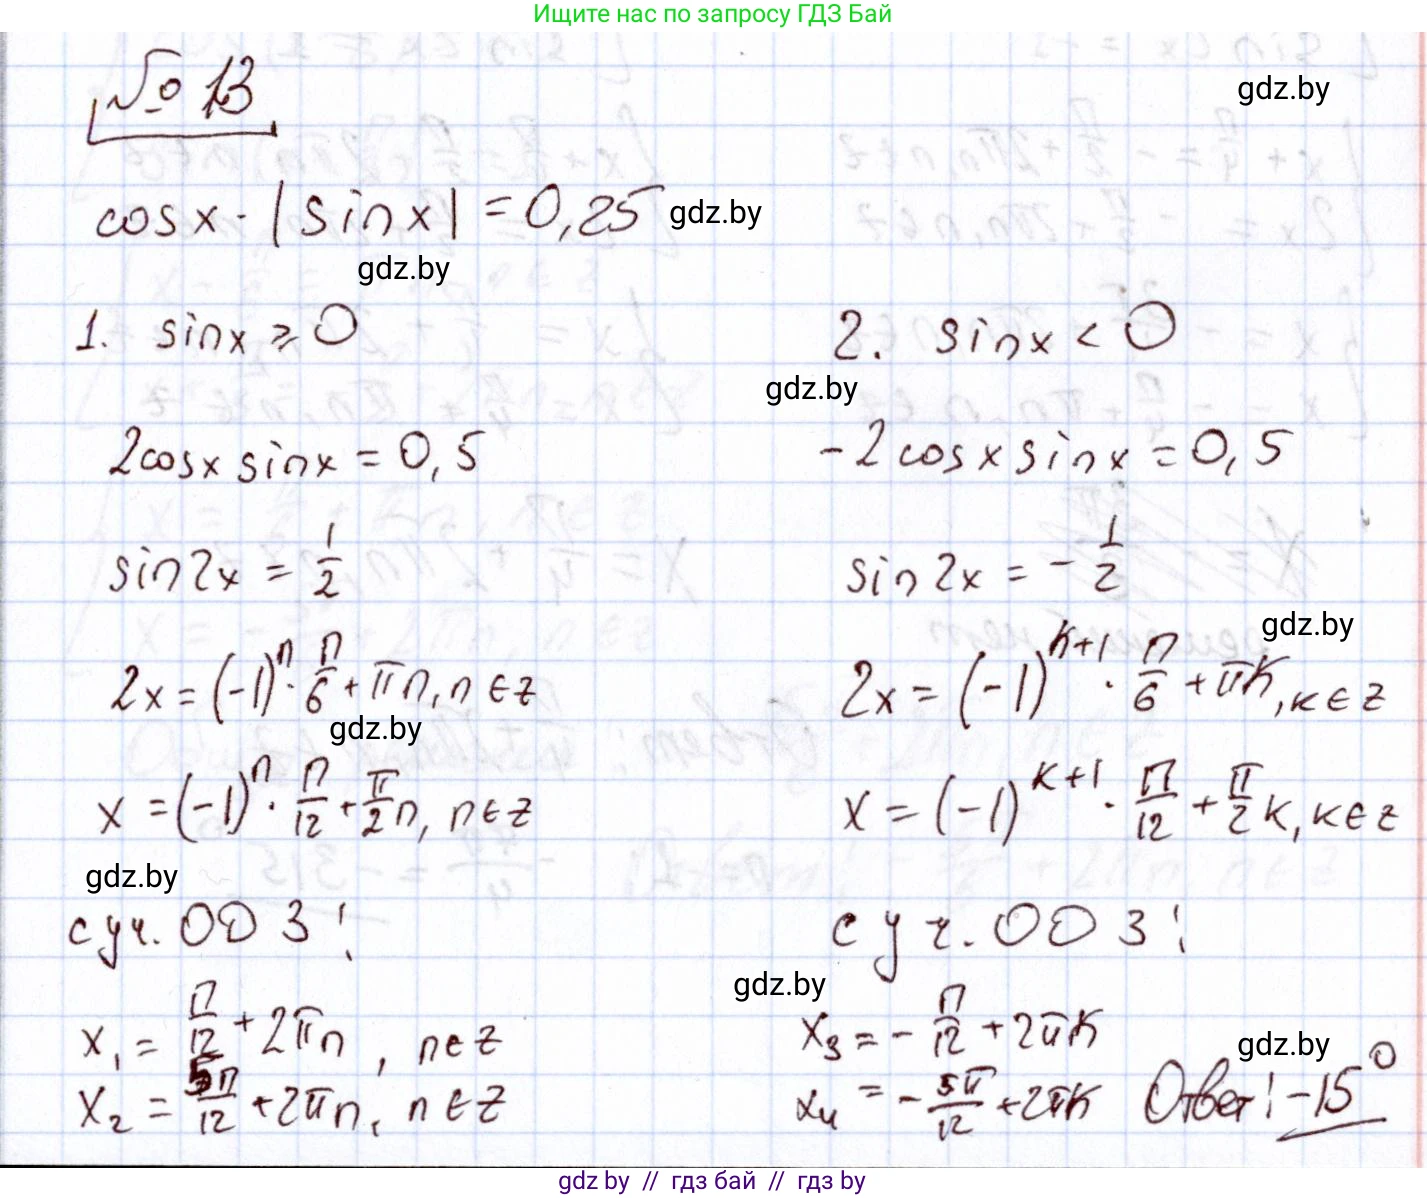 Ищите нас по запросу ГДЗ Бай
№ 13
gdz.by
cosx · |sinx| = 0,25
gdz.by
gdz.by
1. sinx ≥ 0
2. sinx < 0
gdz.by
2cosx sinx = 0,5
-2cosx sinx = 0,5
sin2x = 1/2
sin2x = -1/2
gdz.by
2x = (-1)^n · π/6 + πn, n ∈ z
2x = (-1)^(k+1) · π/6 + πk, k ∈ z
gdz.by
x = (-1)^n · π/12 + π/2 n, n ∈ z
x = (-1)^(k+1) · π/12 + π/2 k, k ∈ z
gdz.by
с уч. ОДЗ:
с уч. ОДЗ:
gdz.by
x₁ = π/12 + 2πn, n ∈ z
x₃ = -π/12 + 2πk
gdz.by
x₂ = 5π/12 + 2πn, n ∈ z
x₄ = -5π/12 + 2πk
Ответ: -15°
gdz.by // гдз бай // гдз by